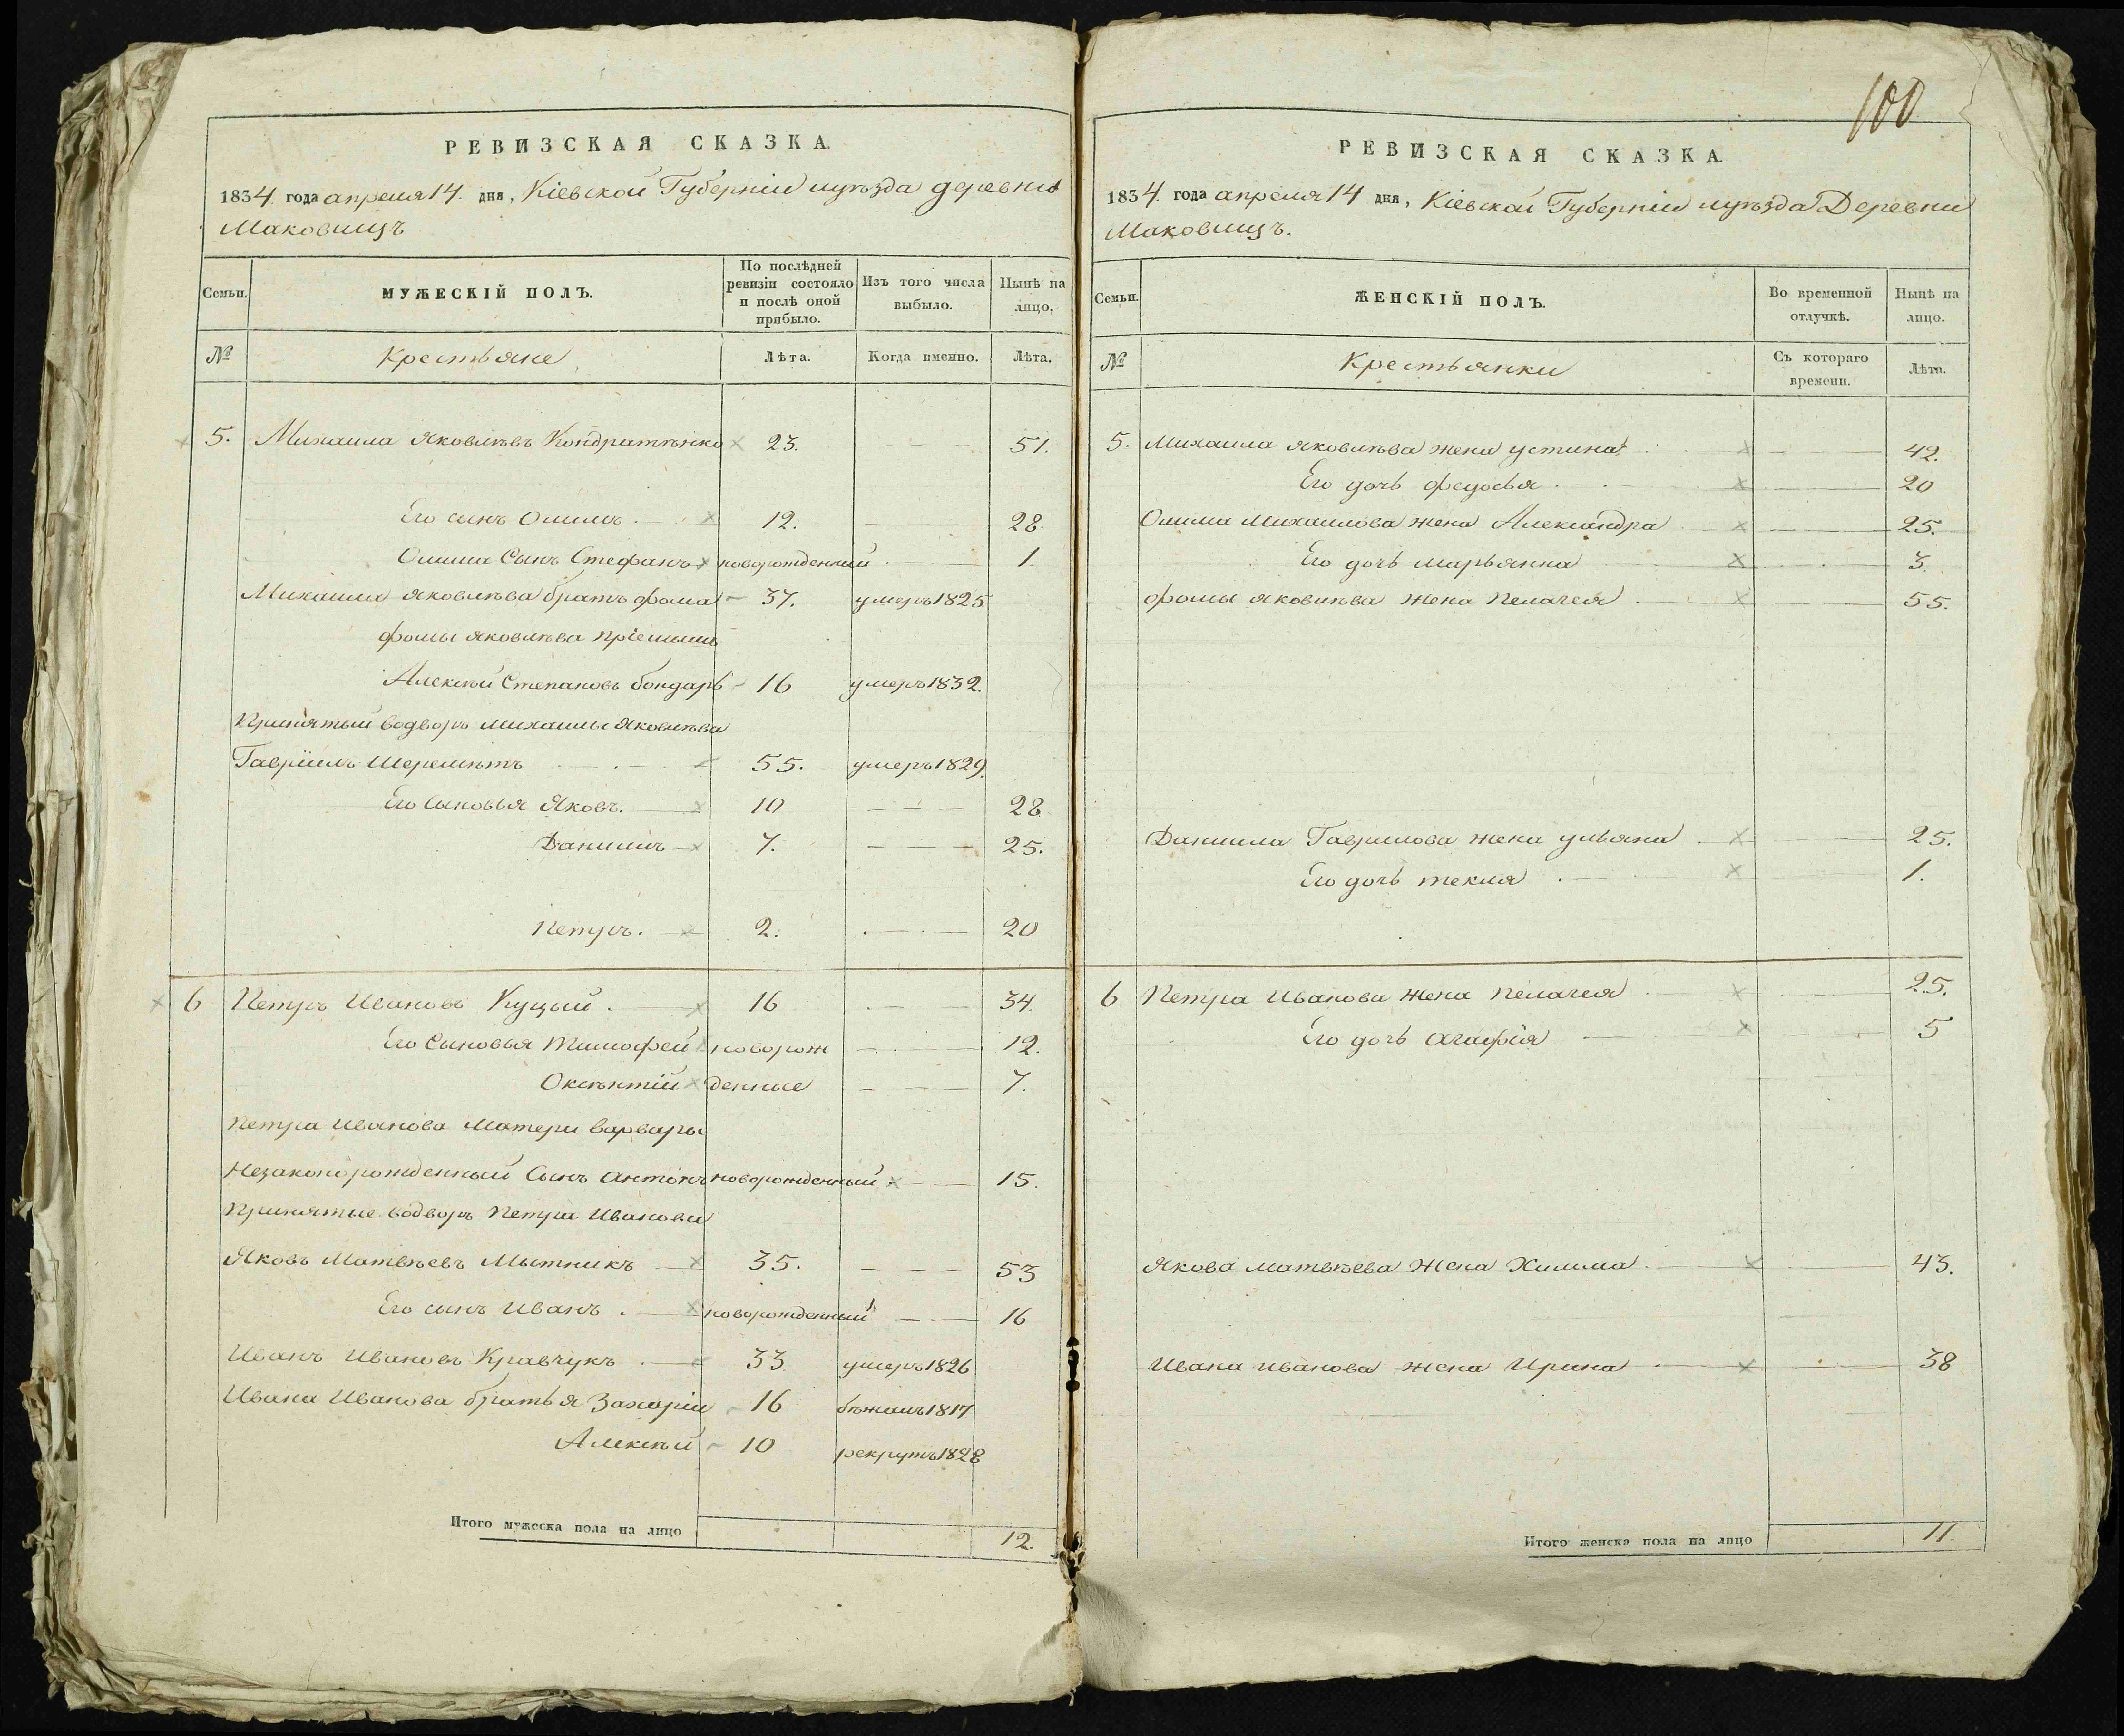 РЕВИЗСКАЯ СКАЗКА.
1834. года апреля 14. дня, Кіевской Губерніи иуѣзда деревни
Маковищъ
Семьи.
МУЖЕСКІЙ ПОЛЪ.
По послѣдней ревизіи состояло и послѣ оной прибыло.
Изъ того числа выбыло.
Нынѣ на лицо.
№ Крестьяне Лѣта. Когда именно. Лѣта.
5. Михаила Яковлѣвъ Кондратѣнко 23. 51.
Его сынъ Олимъ 12. 28.
Олима Сынъ Стефанъ новорожденный 1.
Михаила Яковлѣва братъ фома 37. умеръ 1825
фомы Яковлѣва пріемышь
Алексѣй Степановъ бондарь 16 умеръ 1832.
Принятый водворъ Михаилы Яковлѣва
Гавріилъ Шереметъ 55. умеръ 1829.
Его Сыновья Яковъ. 10 28
Данилъ 7. 25.
Петръ. 2. 20
6 Петръ Ивановъ Куцый. 16 34.
Его Сыновья Тимофей новорож 12.
Оксѣнтій денные 7.
Петра Иванова Матери варвары
Незаконорожденный Сынъ антонъ новорожденный 15.
Принятые водворъ Петра Иванова
Яковъ Матвѣевъ Мытникъ 35. 53
Его сынъ Иванъ. новорожденный 16
Иванъ Ивановъ Кравчукъ 33. умеръ 1826
Ивана Иванова братья Захарій 16 бѣжалъ 1817
Алексѣй 10 рекрутъ 1828
Итого мужеска пола на лицо 12.
100
РЕВИЗСКАЯ СКАЗКА.
1834. года апреля 14 дня, Кіевской Губерніи иуѣзда Деревни
Маковищъ.
Семьи.
ЖЕНСКІЙ ПОЛЪ.
Во временной отлучкѣ.
Нынѣ на лицо.
№ Крестьянки Съ котораго времени. Лѣта.
5. Михаила Яковлѣва жена устина 42.
Его дочь федосья 20
Олима Михаилова жена Александра 25.
Его дочь марьянна 3.
фомы Яковлѣва жена Пелагея 55.
Даниила Гаврилова жена ульяна 25.
Его дочь текля 1.
6 Петра Иванова жена Пелагея 25.
Его дочь агафія 5
Якова Матвѣева Жена Химма 43.
Ивана иванова жена Ирина 38
Итого женска пола на лицо 11.